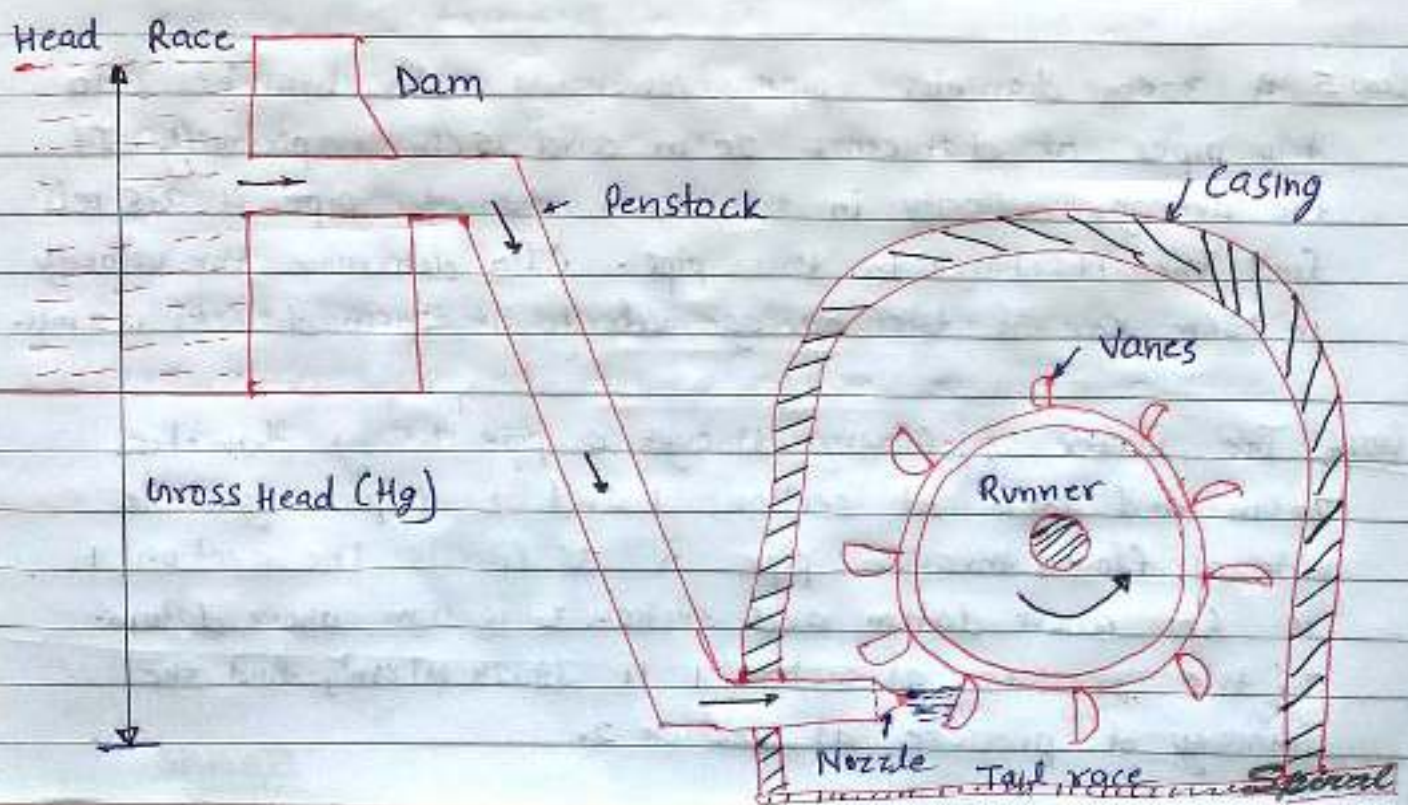 Head Race
Dam
Penstock
Casing
Vanes
Gross Head (Hg)
Runner
Nozzle
Tail race
Spiral